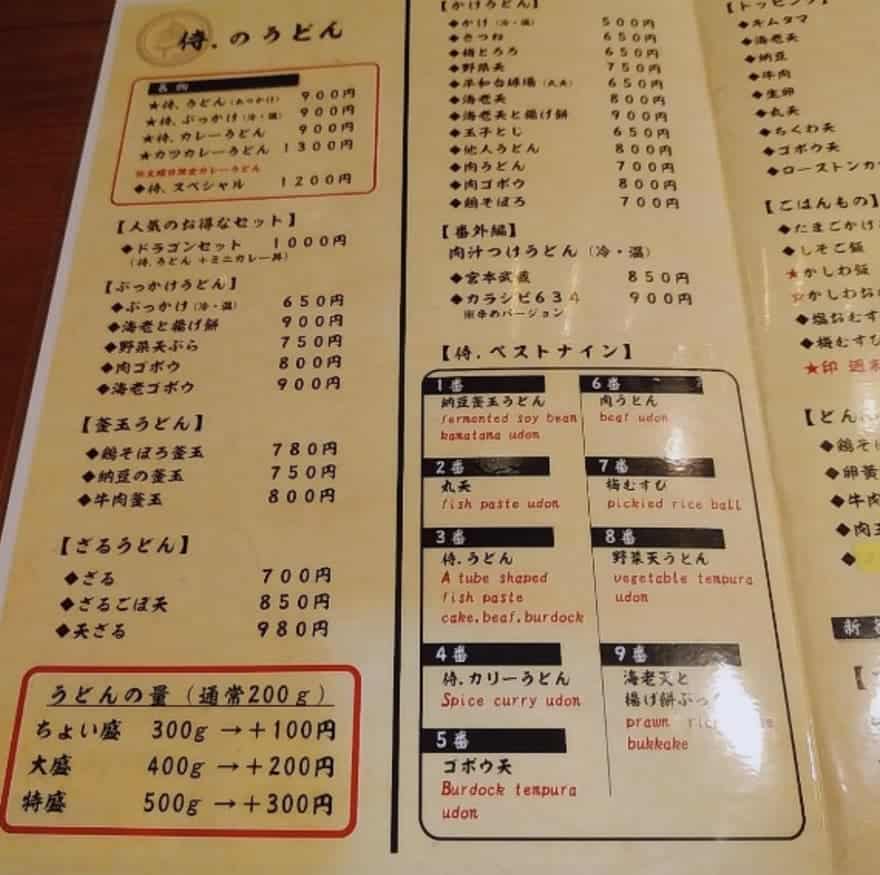 侍.のうどん
名物
★侍.うどん（あつかけ） 900円
★侍.ぶっかけ（冷・温） 900円
★侍.カレーうどん 900円
★カツカレーうどん 1300円
◆侍.スペシャル 1200円
【人気のお得なセット】
◆ドラゴンセット 1000円
（侍.うどん＋ミニカレー丼）
【ぶっかけうどん】
◆ぶっかけ（冷・温） 650円
◆海老と揚げ餅 900円
◆野菜天ぷら 750円
◆肉ゴボウ 800円
◆海老ゴボウ 900円
【釜玉うどん】
◆鶏そぼろ釜玉 780円
◆納豆の釜玉 750円
◆牛肉釜玉 800円
【ざるうどん】
◆ざる 700円
◆ざるごぼ天 850円
◆天ざる 980円
うどんの量（通常200g）
ちょい盛 300g →＋100円
大盛 400g →＋200円
特盛 500g →＋300円
【かけうどん】
◆かけ（冷・温） 500円
◆きつね 650円
◆梅とろろ 650円
◆野菜天 750円
◆平和台球場（丸天） 650円
◆海老天 800円
◆海老天と揚げ餅 900円
◆玉子とじ 650円
◆他人うどん 800円
◆肉うどん 700円
◆肉ゴボウ 800円
◆鶏そぼろ 700円
【番外編】
肉汁つけうどん（冷・温）
◆宮本武蔵 850円
◆カラシビ634 900円
※辛めバージョン
【侍.ベストナイン】
1番
納豆釜玉うどん
fermented soy bean
kamatama udon
2番
丸天
fish paste udon
3番
侍.うどん
A tube shaped
fish paste
cake.beaf.burdock
4番
侍.カリーうどん
Spice curry udon
5番
ゴボウ天
Burdock tempura
udon
6番
肉うどん
beaf udon
7番
梅むすび
pickied rice ball
8番
野菜天うどん
vegetable tempura
udon
9番
海老天と
揚げ餅ぶっ
prawn
bukkake
【トッピング】
◆キムタマ
◆海老天
◆納豆
◆牛肉
◆生卵
◆丸天
◆ちくわ天
◆ゴボウ天
◆ローストンカ
【ごはんもの】
◆たまごかけ
◆しそご飯
★かしわ飯
☆かしわお
◆塩おむす
◆梅むすび
★印 週末
【どん
◆鶏そ
◆卵黄
◆牛肉
◆肉玉
新